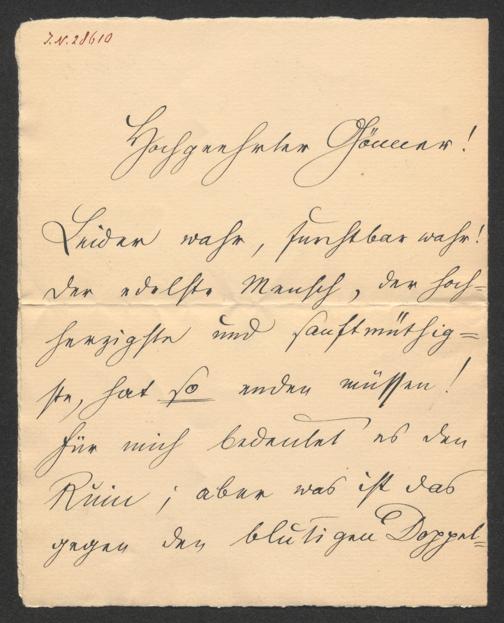 J.N. 28610
Hochgeehrter Gönner!
Leider wahr, furchtbar wahr!
Der edelste Mensch, der hoch=
herzigste und sanftmüthig=
ste, hat so enden müssen!
Für mich bedeutet es den
Ruin; aber was ist das
gegen den blutigen Doppel=